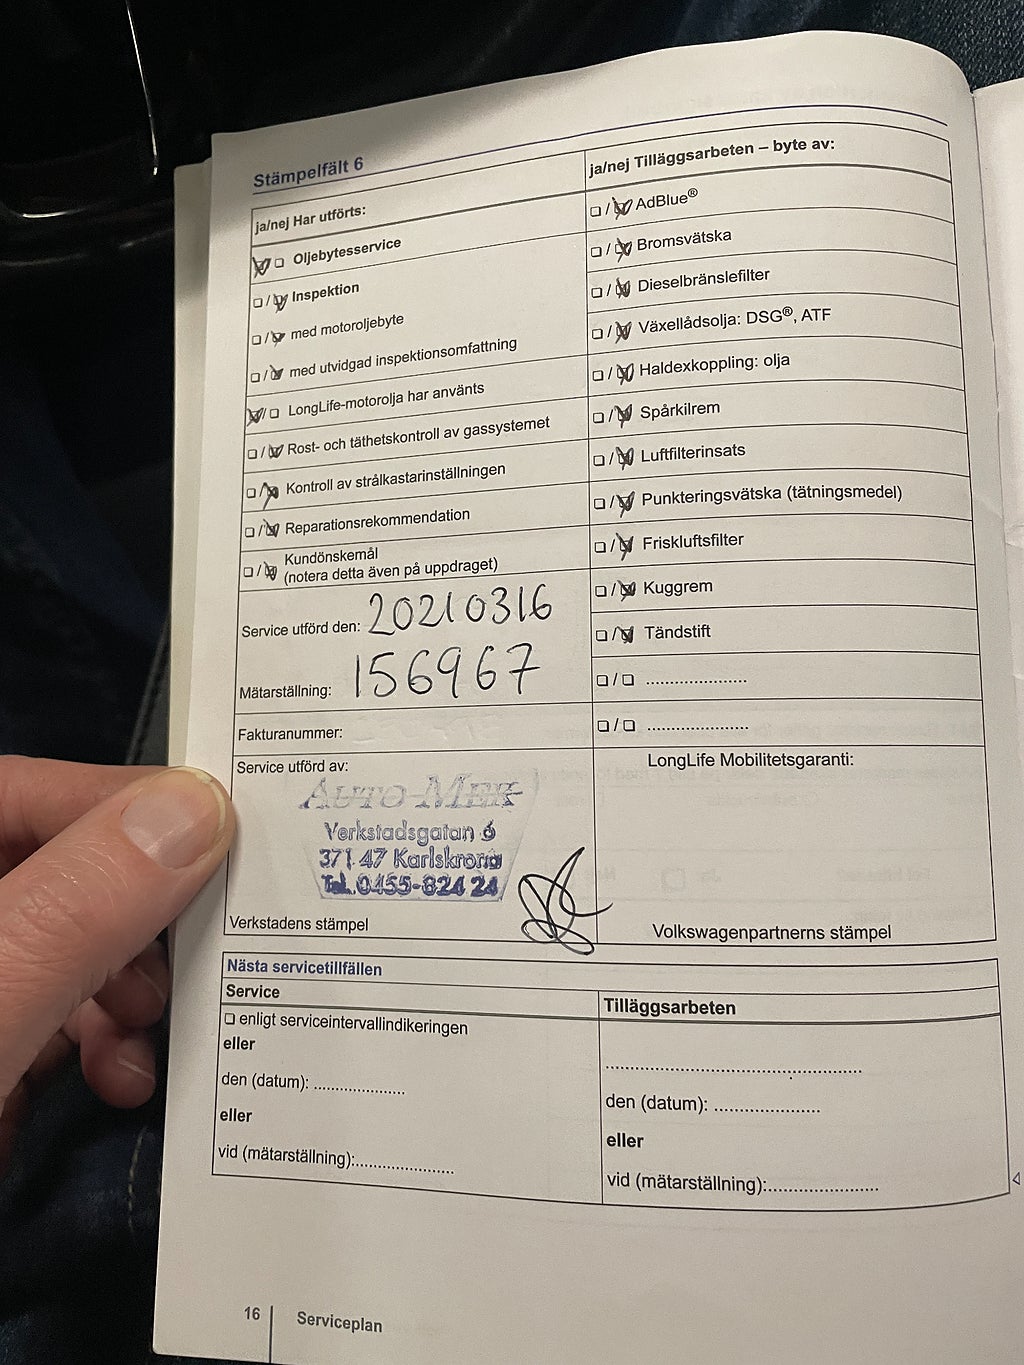 Stämpelfält 6
ja/nej Har utförts:
Oljebytesservice
Inspektion
med motoroljebyte
med utvidgad inspektionsomfattning
LongLife-motorolja har använts
Rost- och täthetskontroll av gassystemet
Kontroll av strålkastarinställningen
Reparationsrekommendation
Kundönskemål
(notera detta även på uppdraget)
Service utförd den: 20210316
Mätarställning: 156967
Fakturanummer:
Service utförd av:
AUTO-MEK
Verkstadsgatan 6
371 47 Karlskrona
Tel. 0455-824 24
Verkstadens stämpel
ja/nej Tilläggsarbeten – byte av:
AdBlue®
Bromsvätska
Dieselbränslefilter
Växellådsolja: DSG®, ATF
Haldexkoppling: olja
Spårkilrem
Luftfilterinsats
Punkteringsvätska (tätningsmedel)
Friskluftsfilter
Kuggrem
Tändstift
LongLife Mobilitetsgaranti:
Volkswagenpartnerns stämpel
Nästa servicetillfällen
Service
enligt serviceintervallindikeringen
eller
den (datum): ....................
eller
vid (mätarställning):....................
Tilläggsarbeten
den (datum): ....................
eller
vid (mätarställning):....................
16 Serviceplan